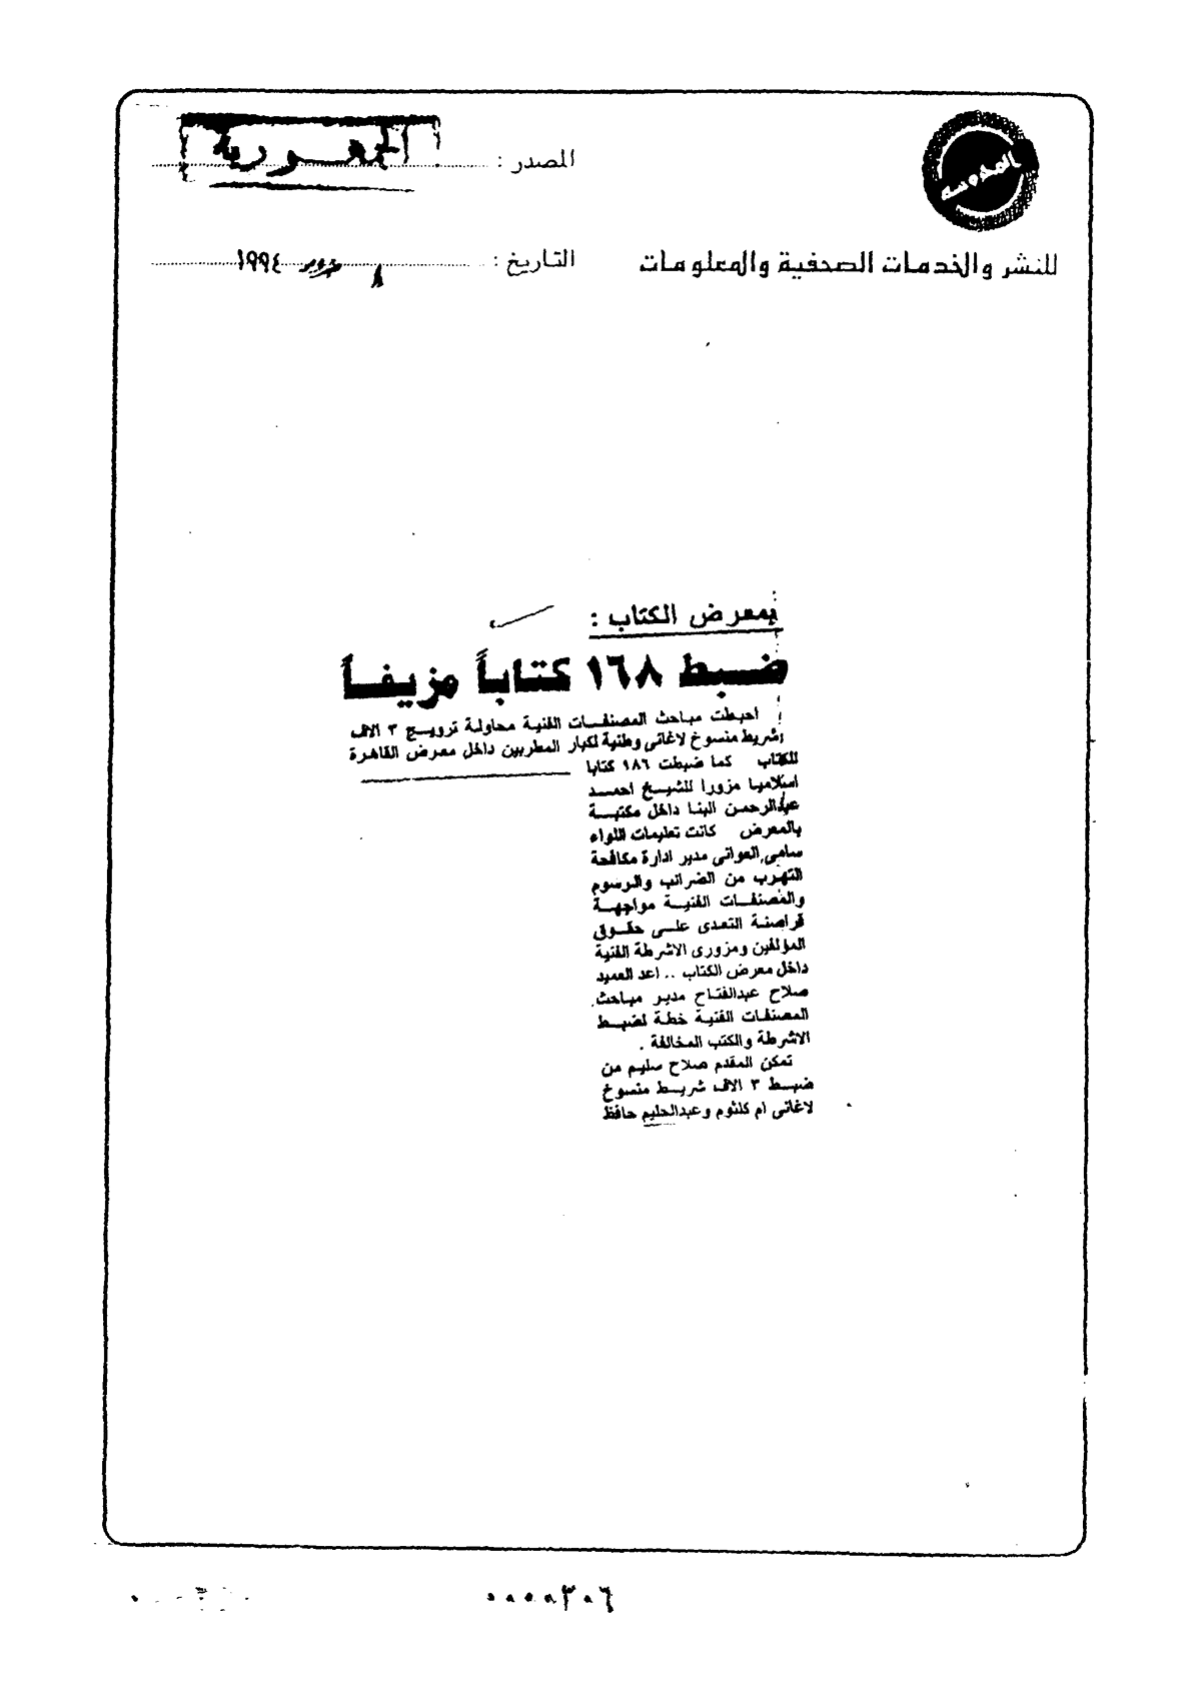 المصدر : الجمهورية
المحروسة
للنشر والخدمات الصحفية والمعلومات
التاريخ : ٨ ١٩٩٤
بمعرض الكتاب :
ضبط ١٦٨ كتاباً مزيفاً
احبطت مباحث المصنفات الفنية محاولة ترويج ٣ الاف
شريط منسوخ لاغانى وطنية لكبار المطربين داخل معرض القاهرة
للكتاب كما ضبطت ١٨٦ كتابا
اسلاميا مزورا للشيخ احمد
عبدالرحمن البنا داخل مكتبة
بالمعرض كانت تعليمات اللواء
سامى العوانى مدير ادارة مكافحة
التهرب من الضرائب والرسوم
والمصنفات الفنية مواجهة
قراصنة التعدى على حقوق
المؤلفين ومزورى الاشرطة الفنية
داخل معرض الكتاب .. اعد العميد
صلاح عبدالفتاح مدير مباحث
المصنفات الفنية خطة لضبط
الاشرطة والكتب المخالفة .
تمكن المقدم صلاح سليم من
ضبط ٣ الاف شريط منسوخ
لاغانى ام كلثوم وعبدالحليم حافظ